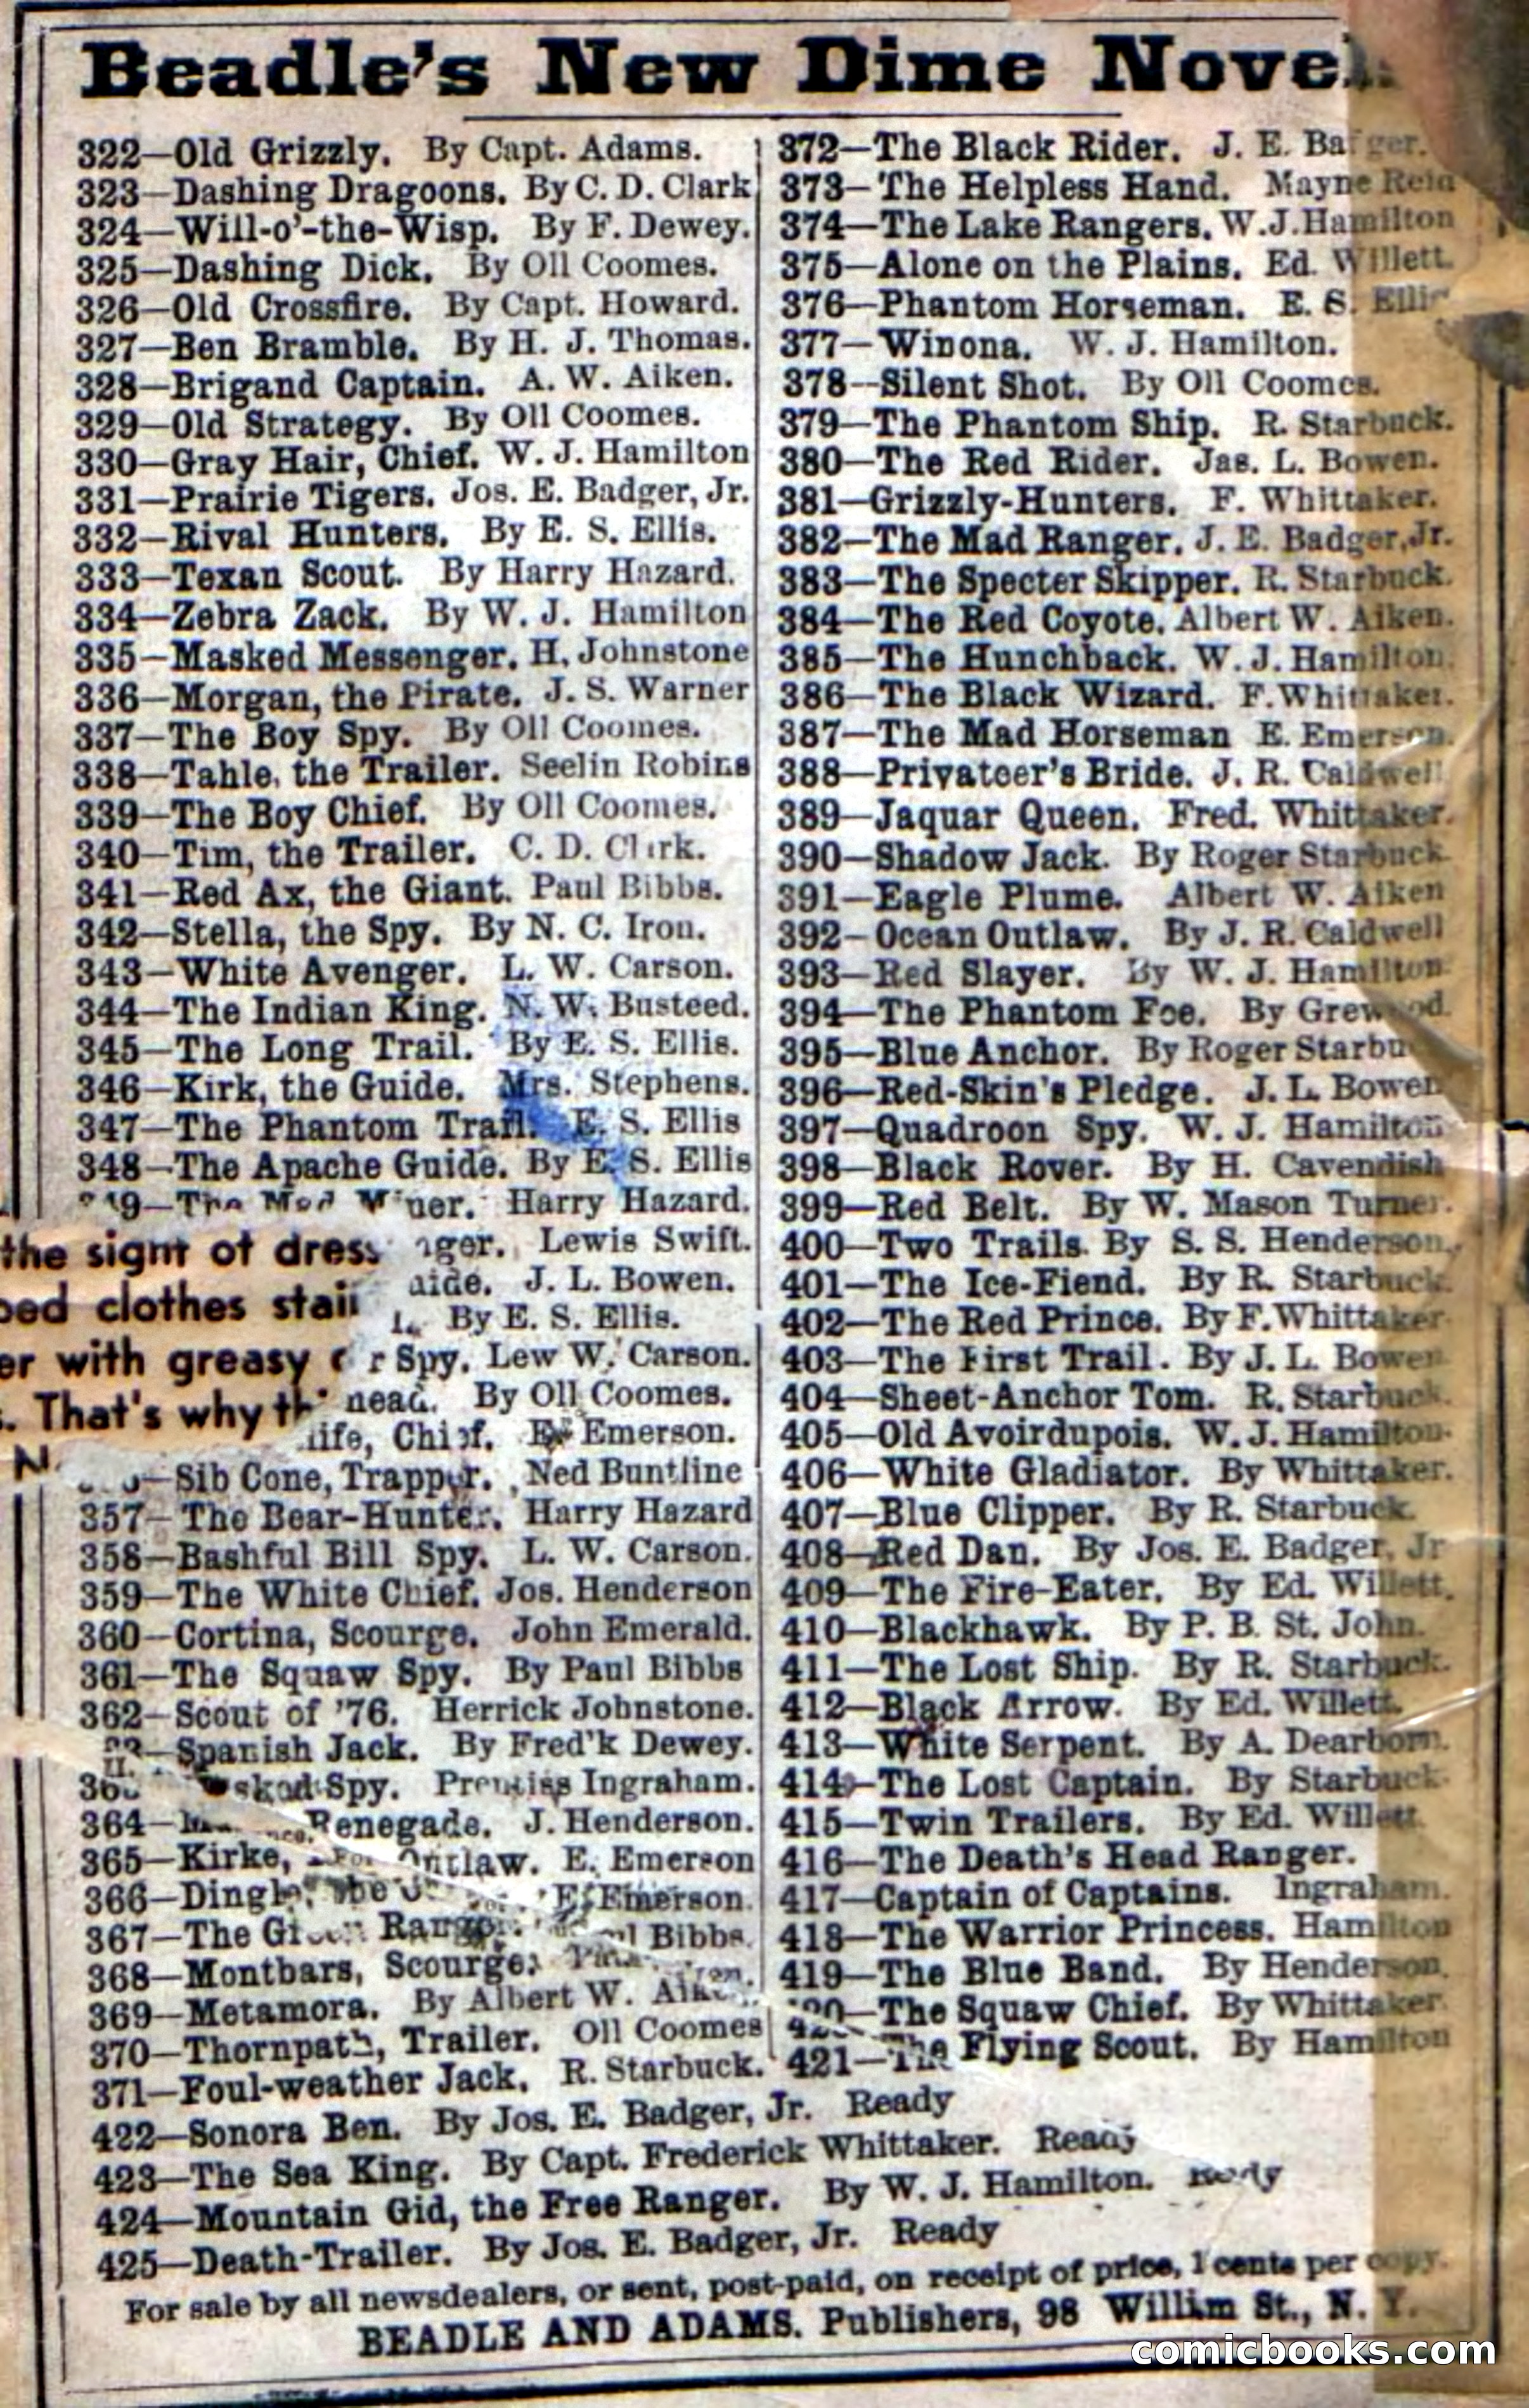 Beadle's New Dime Novel
322—Old Grizzly. By Capt. Adams.
323—Dashing Dragoons. By C. D. Clark
324—Will-o'-the-Wisp. By F. Dewey.
325—Dashing Dick. By Oll Coomes.
326—Old Crossfire. By Capt. Howard.
327—Ben Bramble. By H. J. Thomas.
328—Brigand Captain. A. W. Aiken.
329—Old Strategy. By Oll Coomes.
330—Gray Hair, Chief. W. J. Hamilton
331—Prairie Tigers. Jos. E. Badger, Jr.
332—Rival Hunters. By E. S. Ellis.
333—Texan Scout. By Harry Hazard.
334—Zebra Zack. By W. J. Hamilton
335—Masked Messenger. H. Johnstone
336—Morgan, the Pirate. J. S. Warner
337—The Boy Spy. By Oll Coomes.
338—Tahle, the Trailer. Seelin Robins
339—The Boy Chief. By Oll Coomes.
340—Tim, the Trailer. C. D. Clark.
341—Red Ax, the Giant. Paul Bibbs.
342—Stella, the Spy. By N. C. Iron.
343—White Avenger. L. W. Carson.
344—The Indian King. N. W. Busteed.
345—The Long Trail. By E. S. Ellis.
346—Kirk, the Guide. Mrs. Stephens.
347—The Phantom Trail. E. S. Ellis
348—The Apache Guide. By E. S. Ellis
The Mad Miner. Harry Hazard.
the sight of dress
Lewis Swift.
J. L. Bowen.
clothes stain
By E. S. Ellis.
er with greasy
Spy. Lew W. Carson.
. That's why
By Oll Coomes.
Chief. E. Emerson.
Sib Cone, Trapper. Ned Buntline
357—The Bear-Hunter. Harry Hazard
358—Bashful Bill Spy. L. W. Carson.
359—The White Chief. Jos. Henderson
360—Cortina, Scourge. John Emerald.
361—The Squaw Spy. By Paul Bibbs
362—Scout of '76. Herrick Johnstone.
Spanish Jack. By Fred'k Dewey.
Spy. Prentiss Ingraham.
364— Renegade. J. Henderson.
365—Kirke, Outlaw. E. Emerson
366—Dingle, the E. Emerson.
367—The Green Ranger. Bibbs.
368—Montbars, Scourge.
369—Metamora. By Albert W. Aiken.
370—Thornpath, Trailer. Oll Coomes
371—Foul-weather Jack. R. Starbuck.
372—The Black Rider. J. E. Badger.
373—The Helpless Hand. Mayne Reid
374—The Lake Rangers. W. J. Hamilton
375—Alone on the Plains. Ed. Willett.
376—Phantom Horseman. E. S. Ellis
377—Winona. W. J. Hamilton.
378—Silent Shot. By Oll Coomes.
379—The Phantom Ship. R. Starbuck.
380—The Red Rider. Jas. L. Bowen.
381—Grizzly-Hunters. F. Whittaker.
382—The Mad Ranger. J. E. Badger, Jr.
383—The Specter Skipper. R. Starbuck.
384—The Red Coyote. Albert W. Aiken.
385—The Hunchback. W. J. Hamilton.
386—The Black Wizard. F. Whittaker.
387—The Mad Horseman E. Emerson.
388—Privateer's Bride. J. R. Caldwell
389—Jaquar Queen. Fred. Whittaker.
390—Shadow Jack. By Roger Starbuck.
391—Eagle Plume. Albert W. Aiken
392—Ocean Outlaw. By J. R. Caldwell
393—Red Slayer. By W. J. Hamilton
394—The Phantom Foe. By
395—Blue Anchor. By Roger Starbu
396—Red-Skin's Pledge. J. L. Bowen
397—Quadroon Spy. W. J. Hamilton
398—Black Rover. By H. Cavendish
399—Red Belt. By W. Mason Turner.
400—Two Trails. By S. S. Henderson.
401—The Ice-Fiend. By R. Starbuck.
402—The Red Prince. By F. Whittaker
403—The First Trail. By J. L. Bowen
404—Sheet-Anchor Tom. R. Starbuck.
405—Old Avoirdupois. W. J. Hamilton.
406—White Gladiator. By Whittaker.
407—Blue Clipper. By R. Starbuck.
408—Red Dan. By Jos. E. Badger, Jr
409—The Fire-Eater. By Ed. Willett.
410—Blackhawk. By P. B. St. John.
411—The Lost Ship. By R. Starbuck.
412—Black Arrow. By Ed. Willett.
413—White Serpent. By A. Dearborn.
414—The Lost Captain. By Starbuck.
415—Twin Trailers. By Ed. Willett.
416—The Death's Head Ranger.
417—Captain of Captains. Ingraham.
418—The Warrior Princess. Hamilton
419—The Blue Band. By Henderson.
The Squaw Chief. By Whittaker.
421—The Flying Scout. By Hamilton
422—Sonora Ben. By Jos. E. Badger, Jr. Ready
423—The Sea King. By Capt. Frederick Whittaker. Ready
424—Mountain Gid, the Free Ranger. By W. J. Hamilton. Ready
425—Death-Trailer. By Jos. E. Badger, Jr. Ready
For sale by all newsdealers, or sent, post-paid, on receipt of price, 1 cents per copy.
BEADLE AND ADAMS. Publishers, 98 Willim St., N. Y.
comicbooks.com